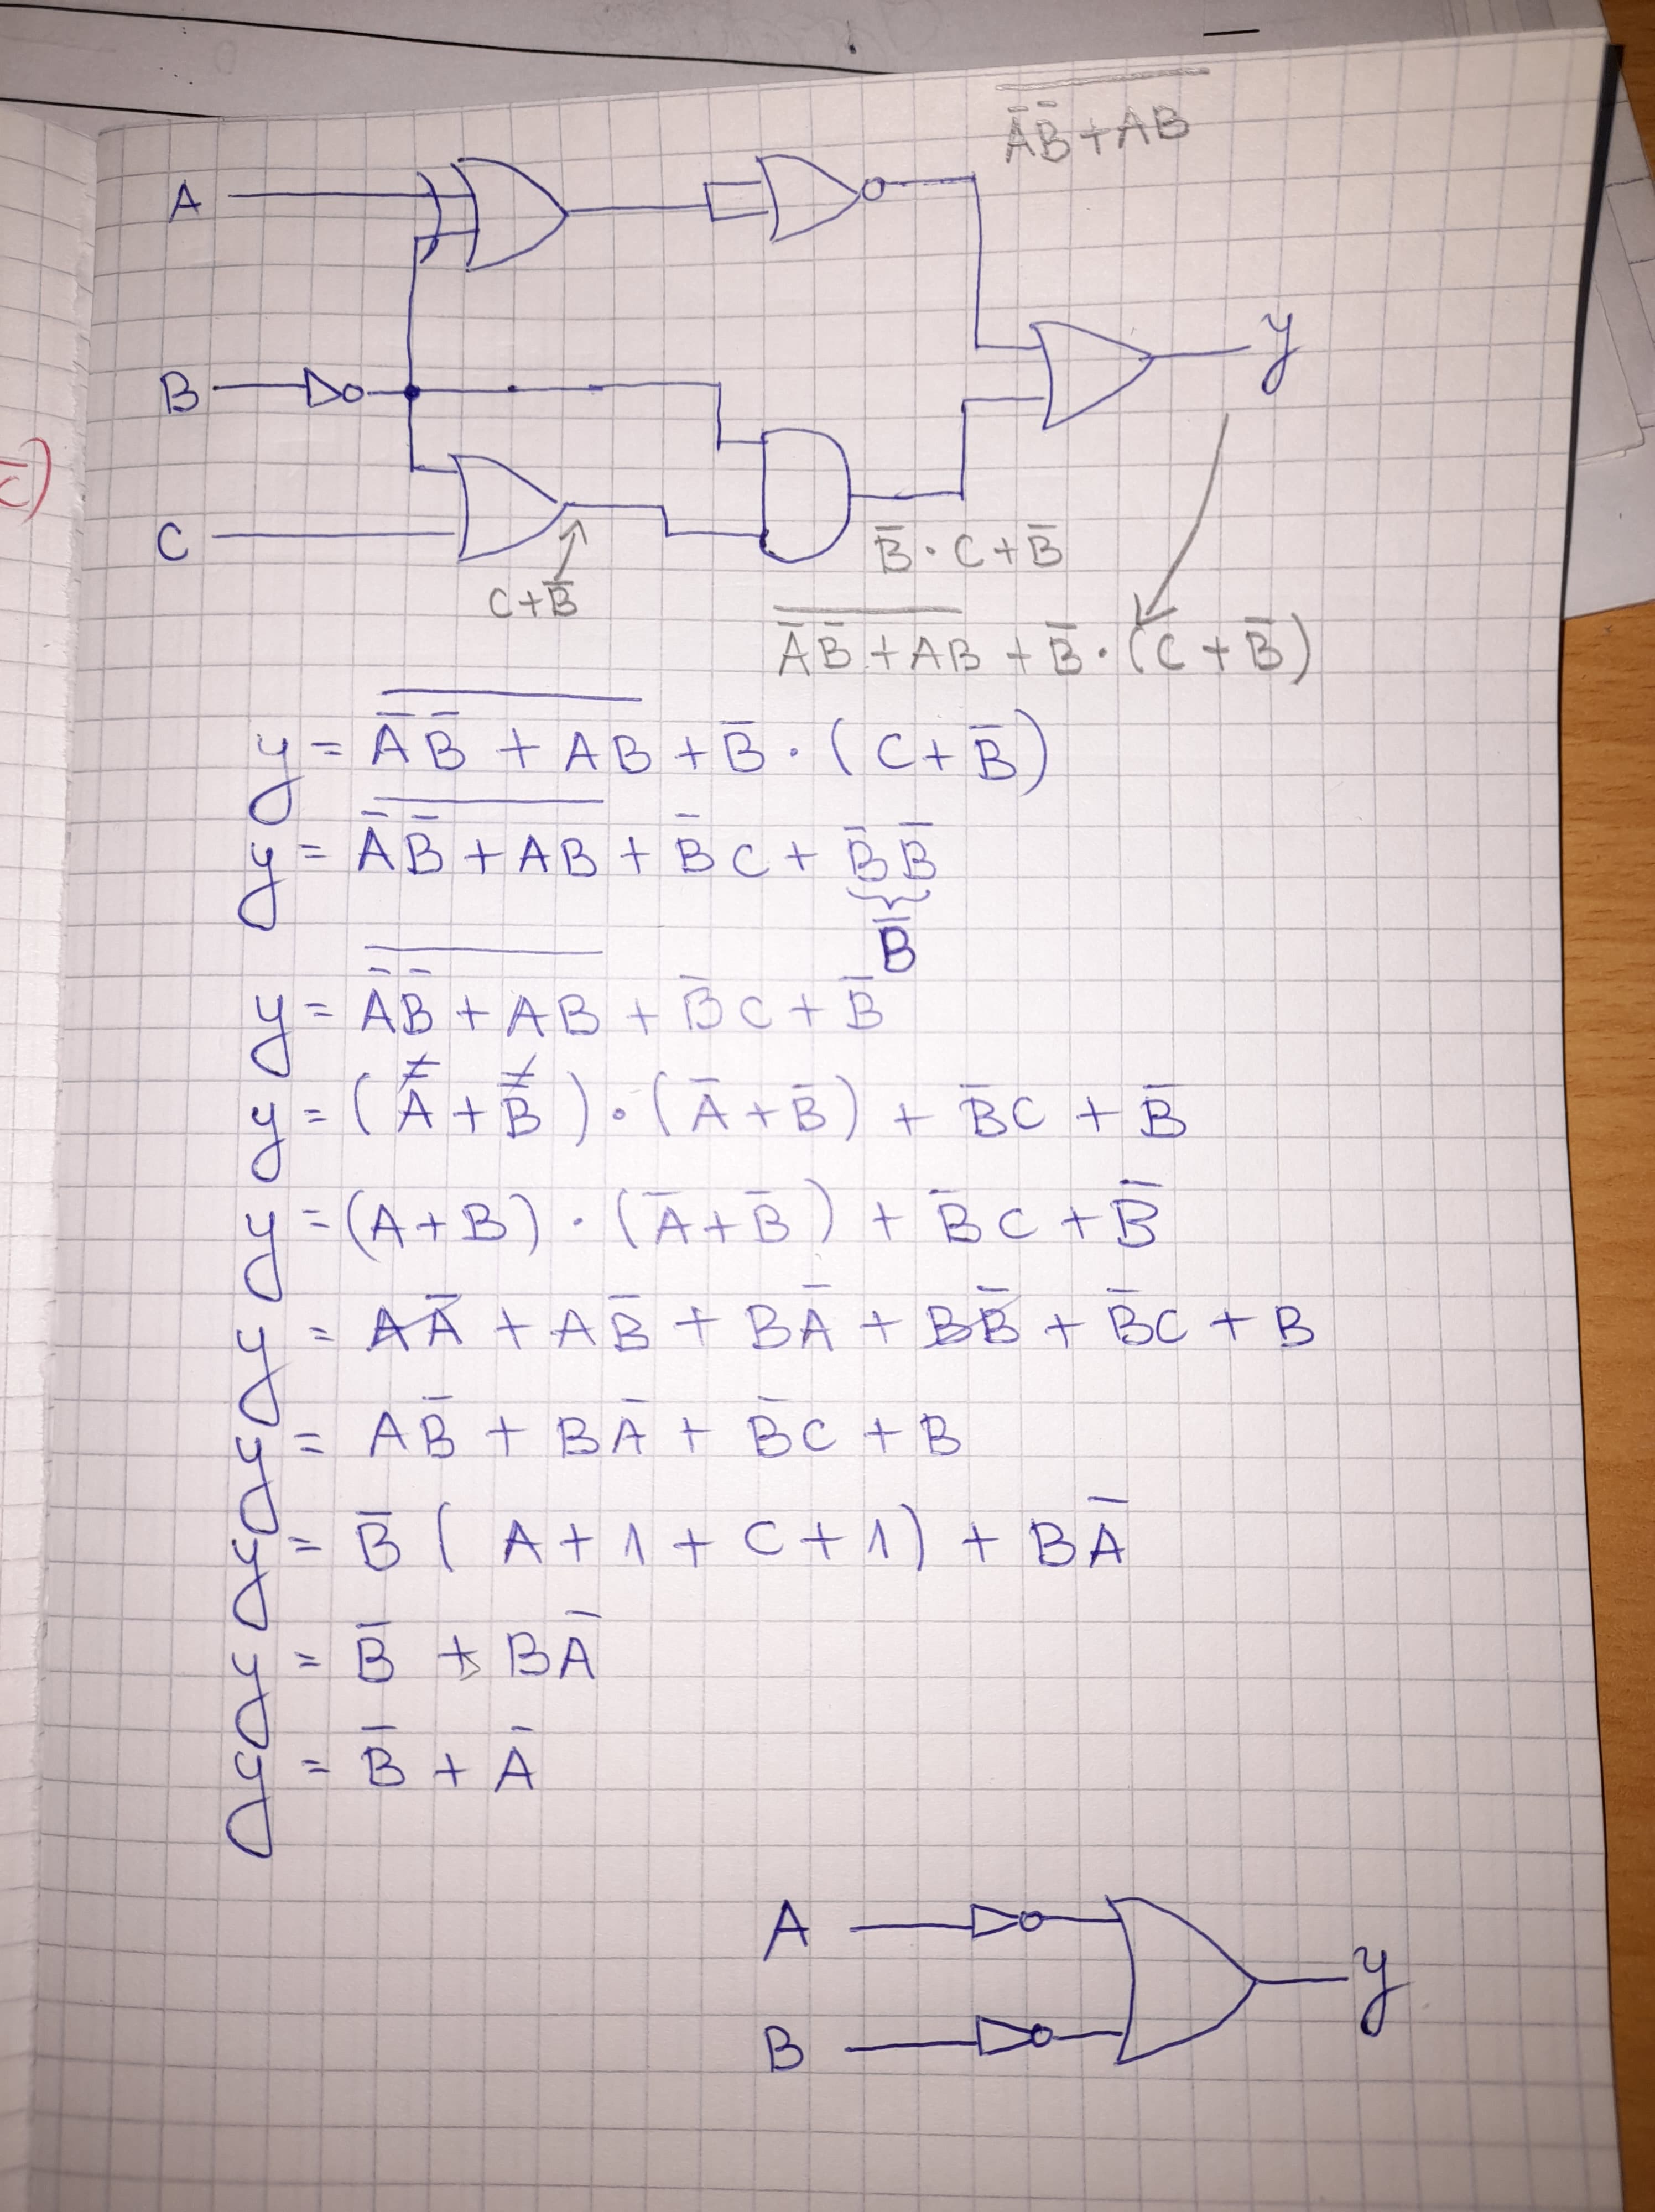 A̅B̅+AB̅
A
y
B
C
B̅·C+B̅
C+B̅
A̅B̅+AB + B̅·(C+B̅)
y = A̅B̅ + AB + B̅·(C+B̅)
y = A̅B̅ + AB + B̅C + B̅B̅
B̅
y = A̅B̅ + AB + B̅C + B̅
y = (A̿ + B̿)·(A̅+B̅) + B̅C + B̅
y = (A+B)·(A̅+B̅) + B̅C + B̅
y = AA̅ + AB̅ + BA̅ + BB̅ + B̅C + B
y = AB̅ + BA̅ + B̅C + B
y = B̅(A+1+C+1) + BA̅
y = B̅ + BA̅
y = B̅ + A̅
A
y
B
c̅)